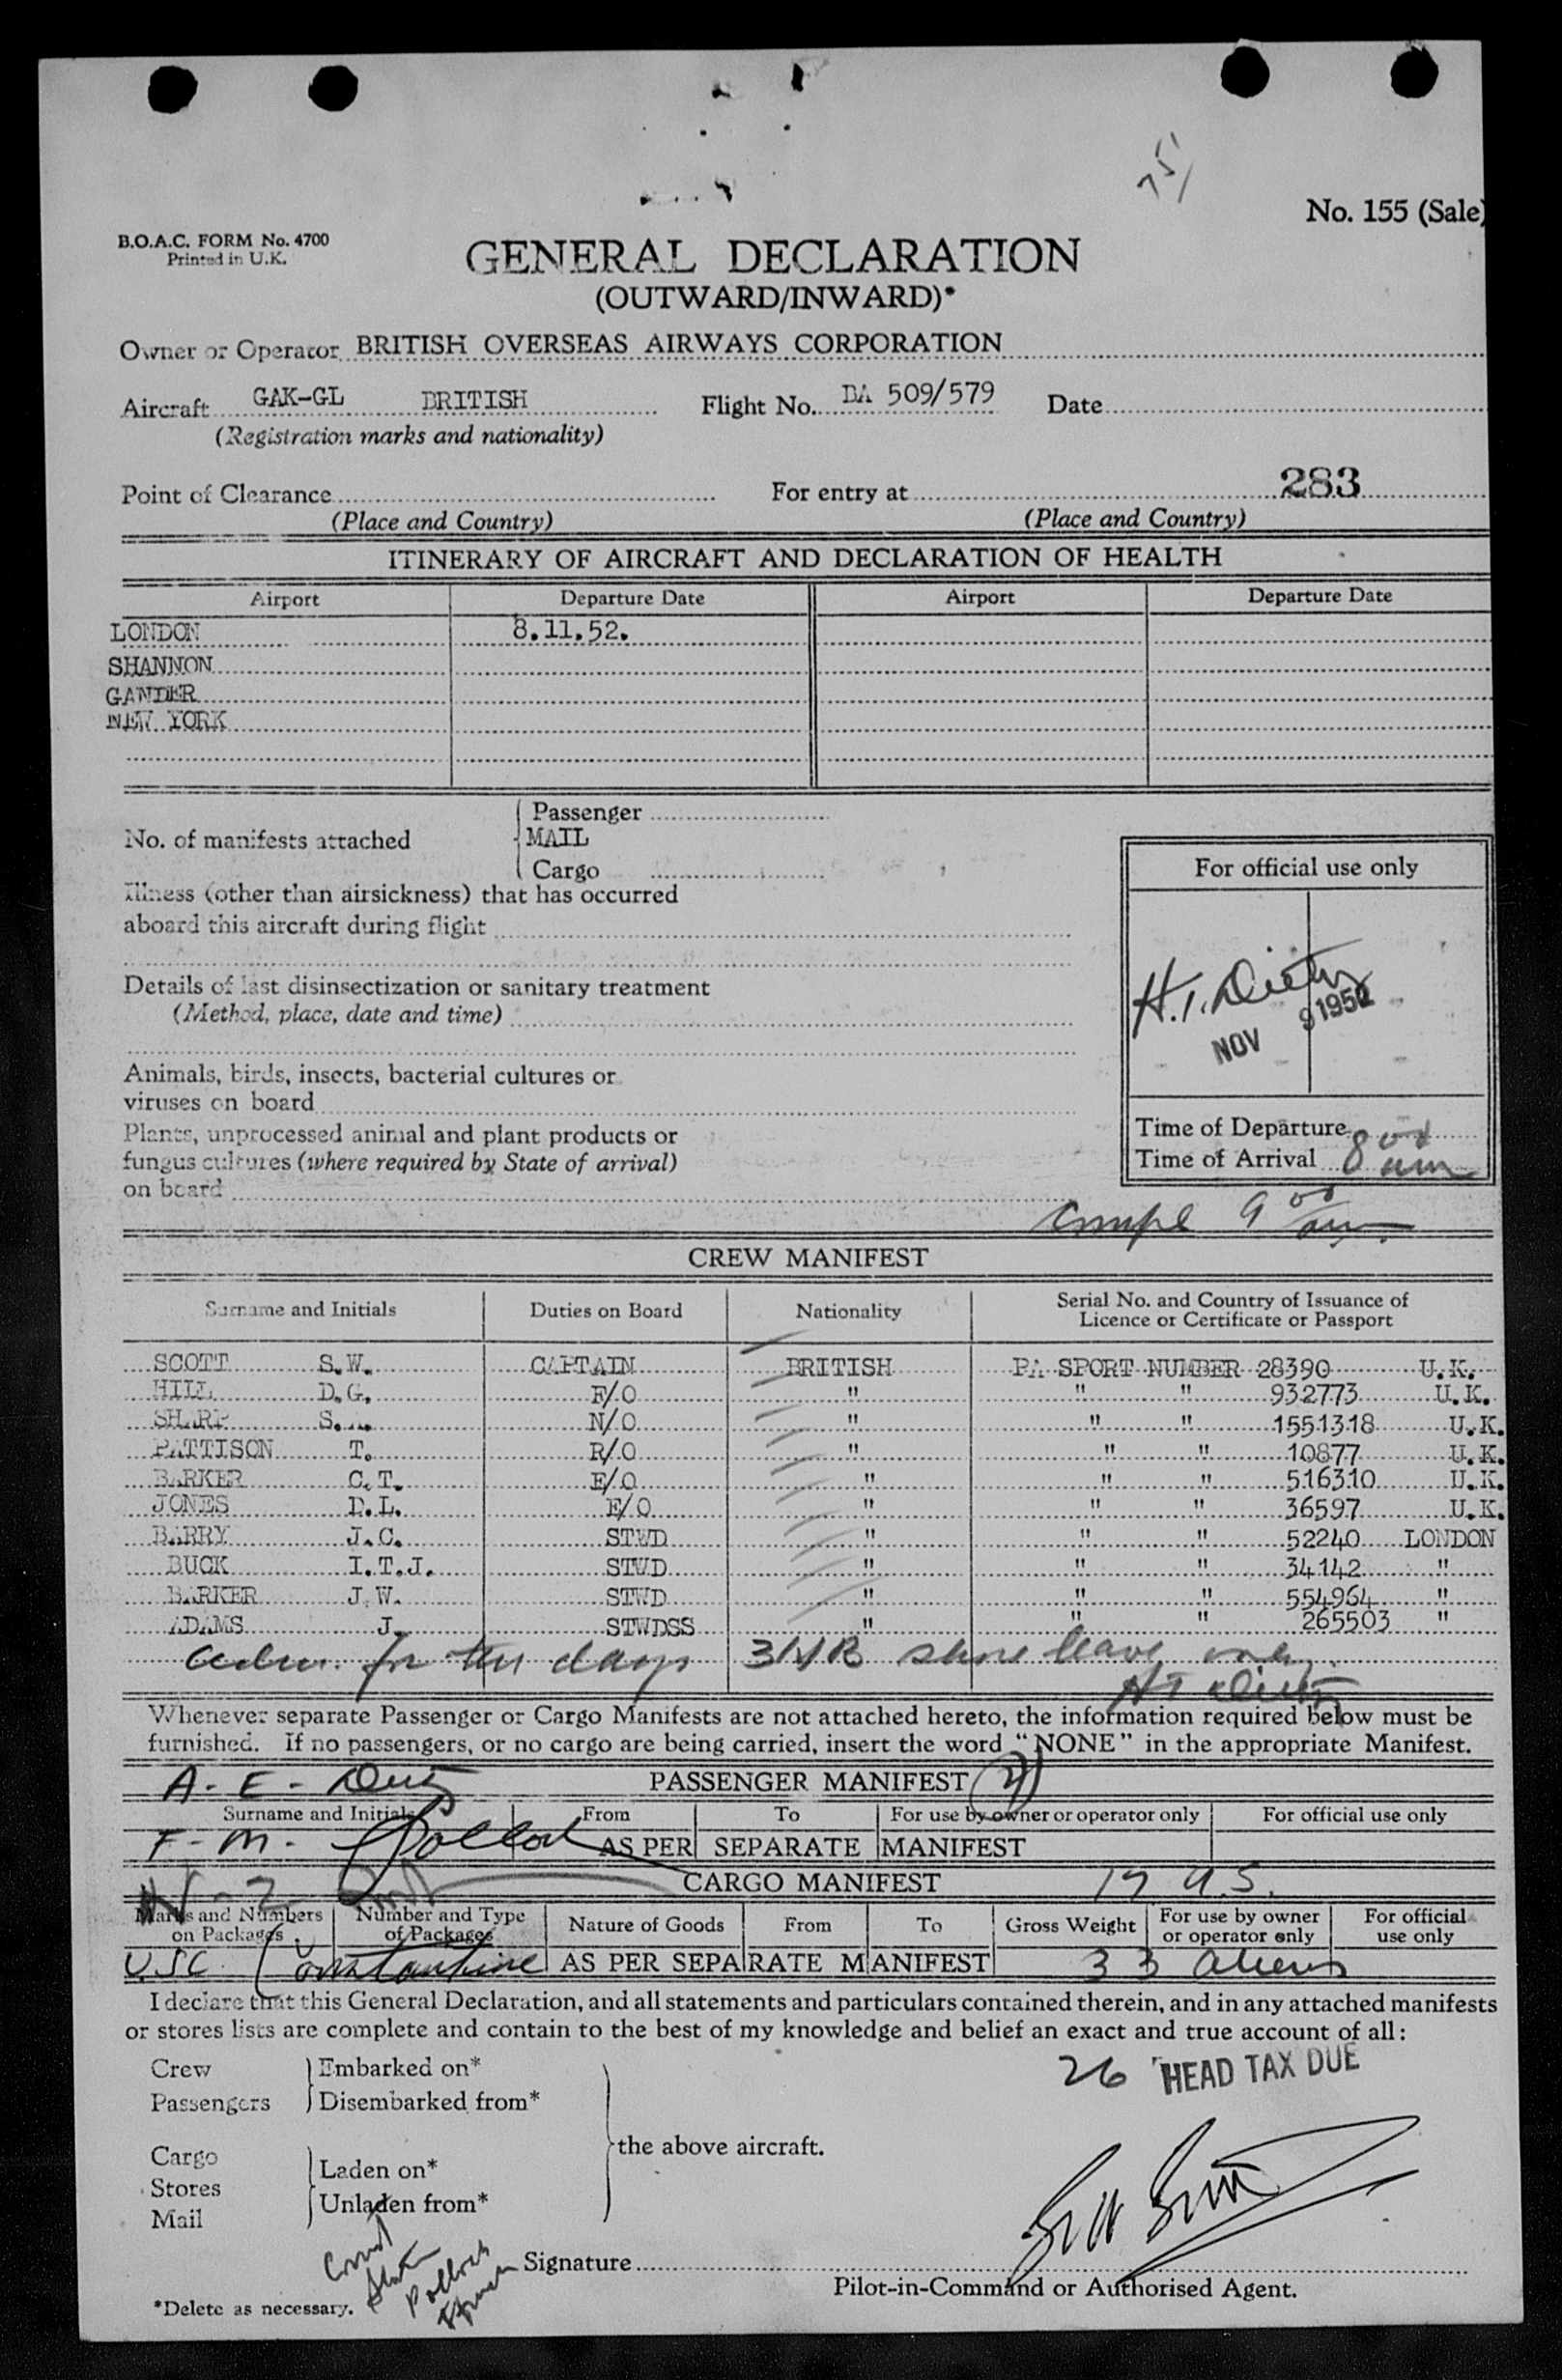 75/
No. 155 (Sale)
B.O.A.C. FORM No. 4700
Printed in U.K.
GENERAL DECLARATION
(OUTWARD/INWARD)*
Owner or Operator BRITISH OVERSEAS AIRWAYS CORPORATION
Aircraft GAK-GL BRITISH Flight No. BA 509/579 Date
(Registration marks and nationality)
Point of Clearance For entry at 283
(Place and Country) (Place and Country)
ITINERARY OF AIRCRAFT AND DECLARATION OF HEALTH
Airport Departure Date Airport Departure Date
LONDON 8.11.52.
SHANNON
GANDER
NEW YORK
Passenger
No. of manifests attached MAIL
Cargo
For official use only
Illness (other than airsickness) that has occurred
aboard this aircraft during flight
Details of last disinsectization or sanitary treatment
(Method, place, date and time)
H.T. Dietz
NOV 9 1952
Animals, birds, insects, bacterial cultures or
viruses on board
Plants, unprocessed animal and plant products or
fungus cultures (where required by State of arrival)
on board
Time of Departure
Time of Arrival 8 00 am
Compl 9 00 am
CREW MANIFEST
Surname and Initials Duties on Board Nationality Serial No. and Country of Issuance of
Licence or Certificate or Passport
SCOTT S.W. CAPTAIN BRITISH PASSPORT NUMBER 28390 U.K.
HILL D.G. F/O " " " 932773 U.K.
SHARP S. N/O " " " 1551318 U.K.
PATTISON T. R/O " " " 10877 U.K.
BARKER C.T. E/O " " " 516310 U.K.
JONES D.L. E/O " " " 36597 U.K.
BARRY J.C. STWD " " " 52240 LONDON
BUCK I.T.J. STWD " " " 34142 "
BARKER J.W. STWD " " " 554964 "
ADAMS J. STWDSS " " " 265503 "
for ten days shore leave only.
HT Dietz
Whenever separate Passenger or Cargo Manifests are not attached hereto, the information required below must be
furnished. If no passengers, or no cargo are being carried, insert the word "NONE" in the appropriate Manifest.
A. E. PASSENGER MANIFEST
Surname and Initials From To For use by owner or operator only For official use only
F. M. Pollock AS PER SEPARATE MANIFEST
CARGO MANIFEST
Marks and Numbers on Packages Number and Type of Packages Nature of Goods From To Gross Weight For use by owner or operator only For official use only
USC Constantine AS PER SEPARATE MANIFEST 33 Aliens
I declare that this General Declaration, and all statements and particulars contained therein, and in any attached manifests
or stores lists are complete and contain to the best of my knowledge and belief an exact and true account of all:
Crew Embarked on*
Passengers Disembarked from*
26 HEAD TAX DUE
the above aircraft.
Cargo
Laden on*
Stores
Unladen from*
Mail
Pollock
Signature
Pilot-in-Command or Authorised Agent.
*Delete as necessary.